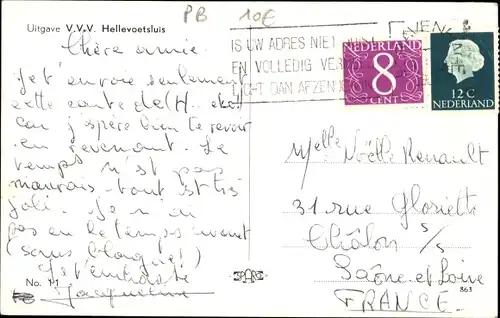 PB 10€
Uitgave V.V.V. Hellevoetsluis
Chère amie.
Je t'envoie seulement
cette carte de H.
car j'espère bien te revoir
en revenant. Le
temps n'est pas
mauvais - tout est très
joli. Je n'ai
pas eu le temps avant
(sans blague!)
Je t'embrasse
Jacqueline
No. 11
IS UW ADRES NIET JUIST
EN VOLLEDIG VER
LICHT DAN AFZEN
NEDERLAND
8
CENT
12 C
NEDERLAND
Melle Noëlle Renault
31 rue Gloriette
Châlon s/s
Saône et Loire
FRANCE
SPARO
863